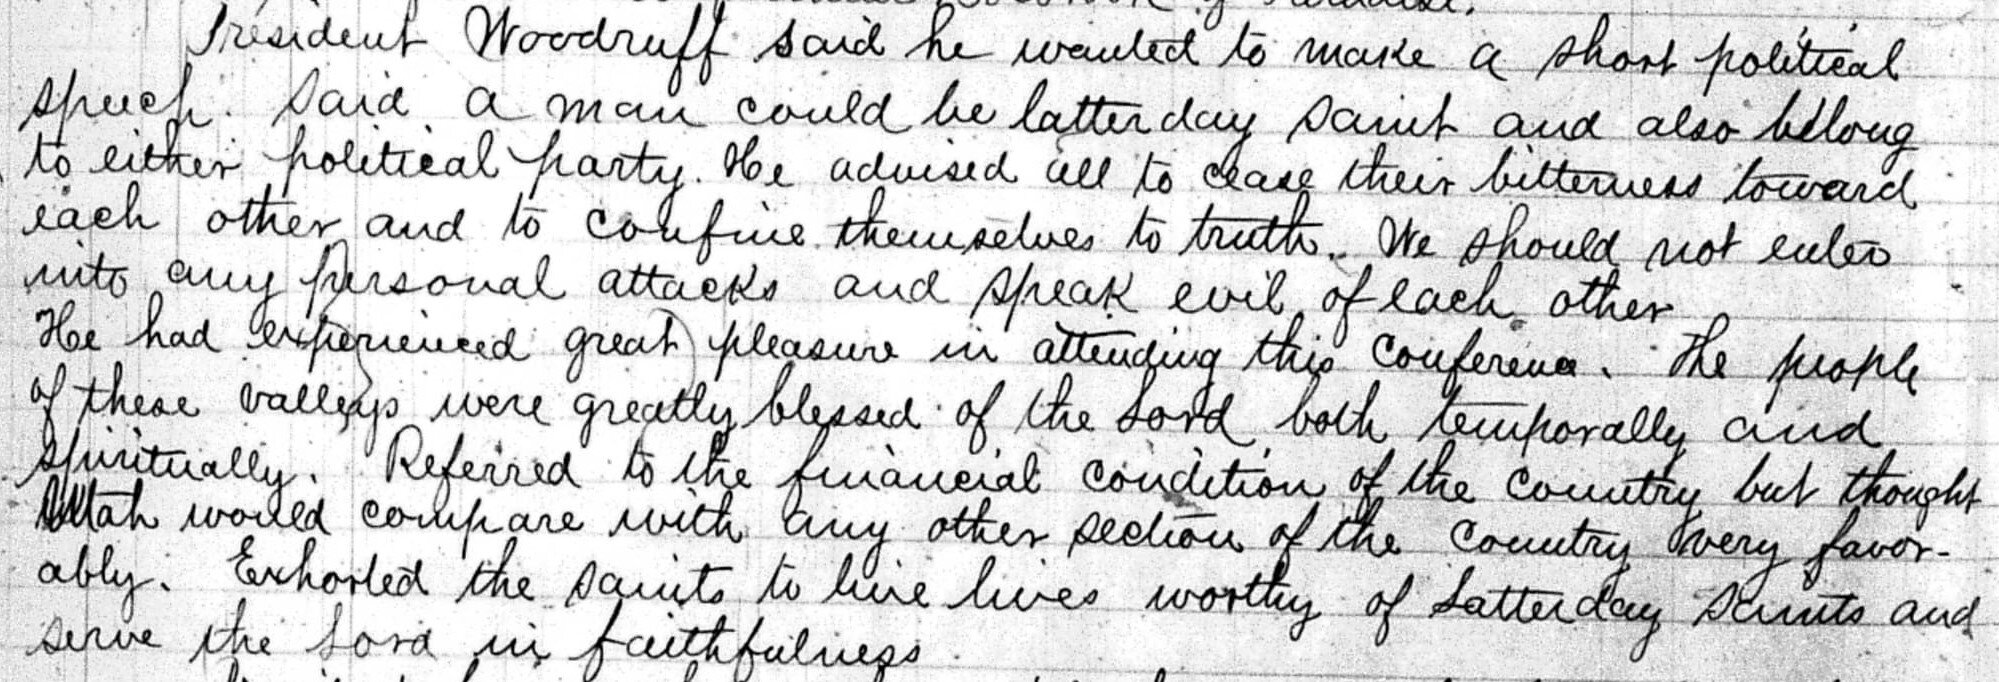 of Paradise.
President Woodruff said he wanted to make a short political
speech. Said a man could be latterday saint and also belong
to either political party. He advised all to cease their bitterness toward
each other and to confine themselves to truth. We should not enter
into any personal attacks and speak evil of each other
He had experienced great pleasure in attending this conference. The people
of these valleys were greatly blessed of the Lord both temporally and
spiritually. Referred to the financial condition of the country but thought
Utah would compare with any other section of the country very favor-
ably. Exhorted the saints to live lives worthy of Latterday Saints and
serve the Lord in faithfulness